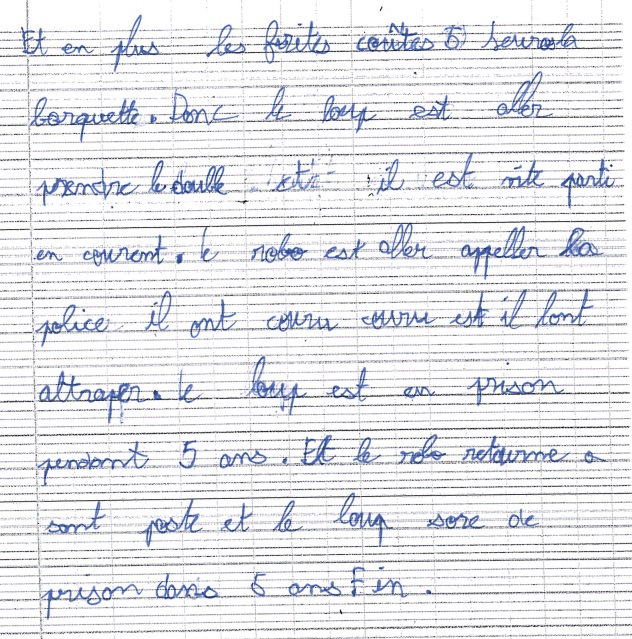 Et en plus les frites coûtes 5 heuros la
barquette. Donc le loup est aller
prendre le double et il est vite parti
en courent. le robo est aller appeller la
police il ont couru couru est il lont
attraper. le loup est en prison
pendant 5 ans. Et le robo retourne a
sont poste et le loup sore de
prison dans 5 ans Fin.